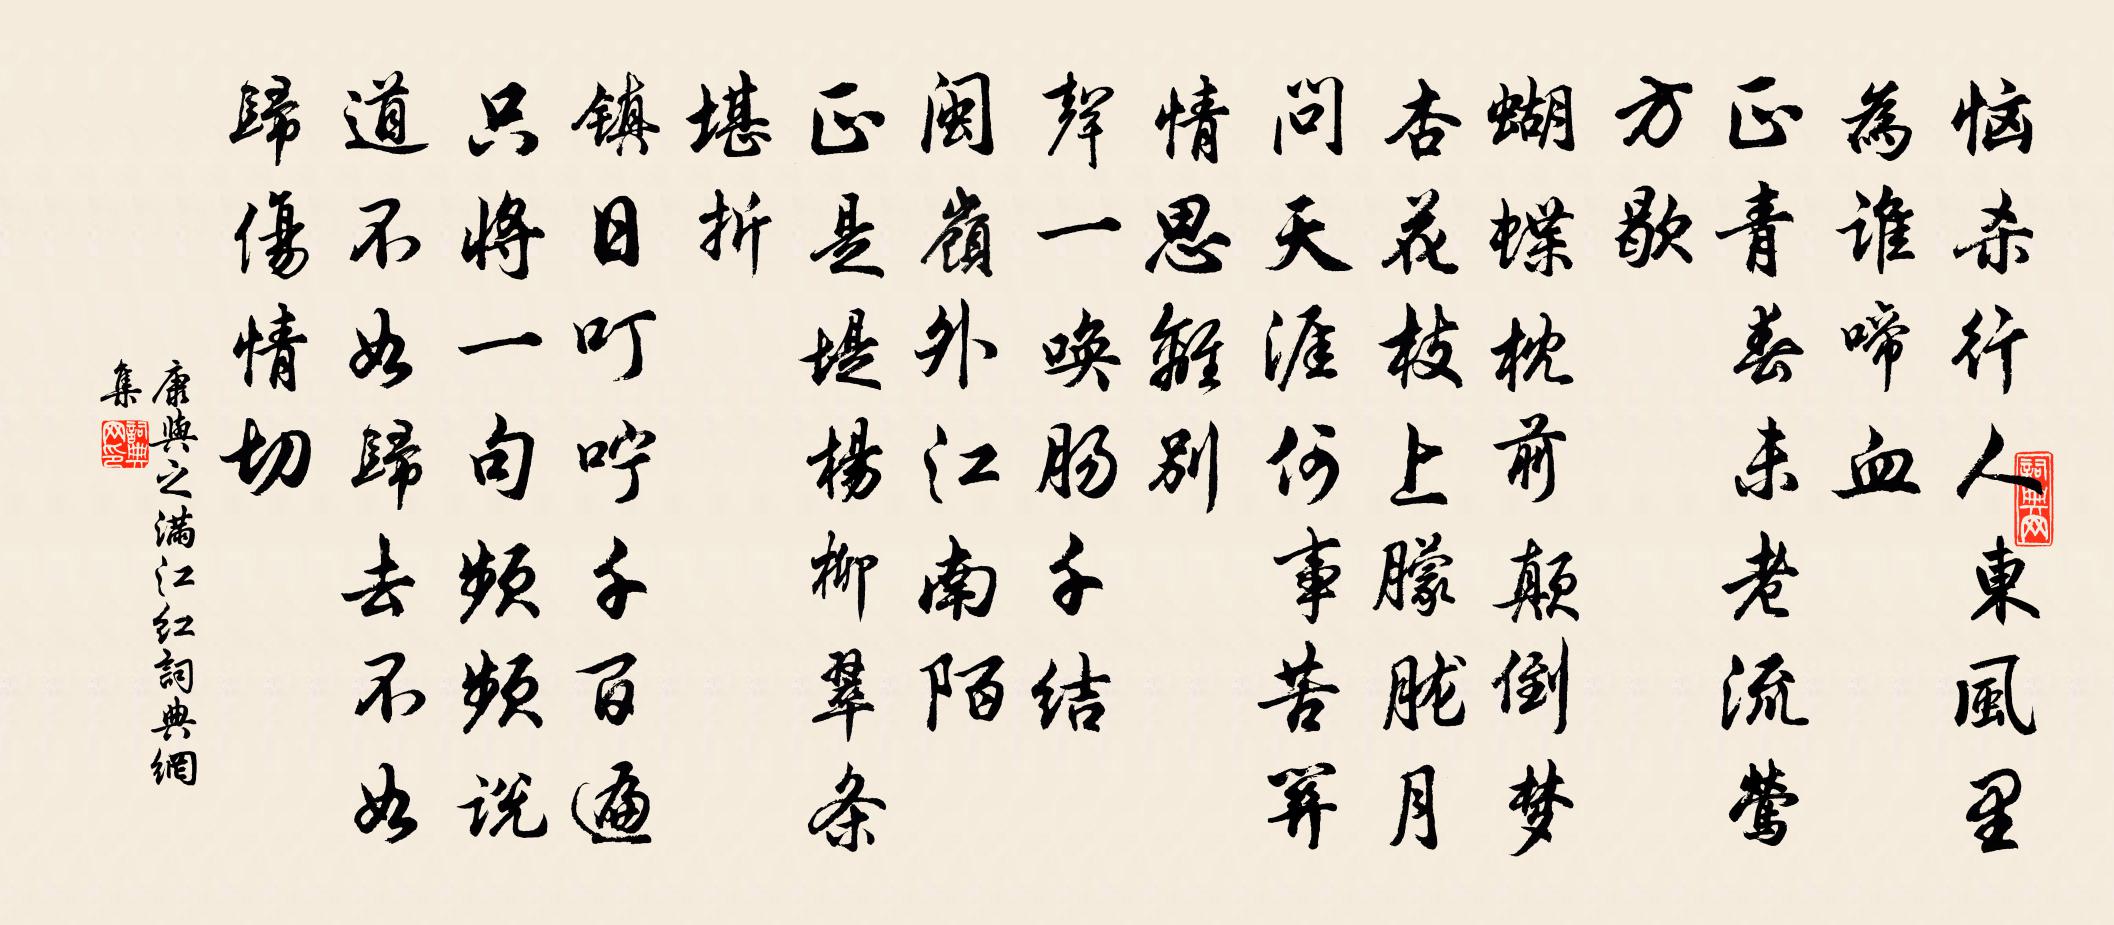 恼杀行人東風里
為谁啼血
正青春未老流莺
方歇
蝴蝶枕前颠倒梦
杏花枝上朦胧月
问天涯何事苦关
情思離别
聲一唤肠千结
闽嶺外江南陌
正是堤楊柳翠条
堪折
镇日叮咛千百遍
只将一句频频说
道不如歸去不如
歸傷情切
康與之满江红詞典網
集
詞典网
詞典网印